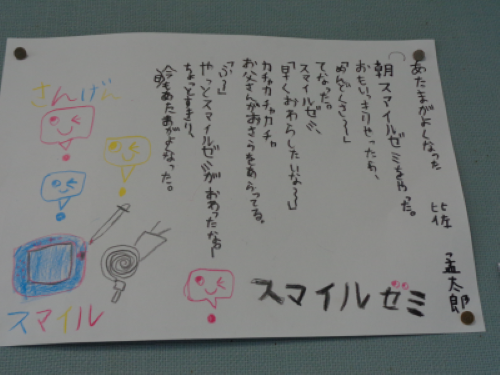 あたまがよくなった
比佐 孟太郎
朝スマイルゼミをやった。
おもいっきりやったら、
「めんどくさ〜〜」
てなった。
スマイルゼミ、
「早くおわらしたいな〜〜」
カチャカチャカチャ
お父さんがおさらをあらってる。
「ふ〜〜」
やっとスマイルゼミがおわったなぁ〜
ちょっとすっきり、
今日もあたまがよくなった。
さんげん
スマイル
スマイルゼミ